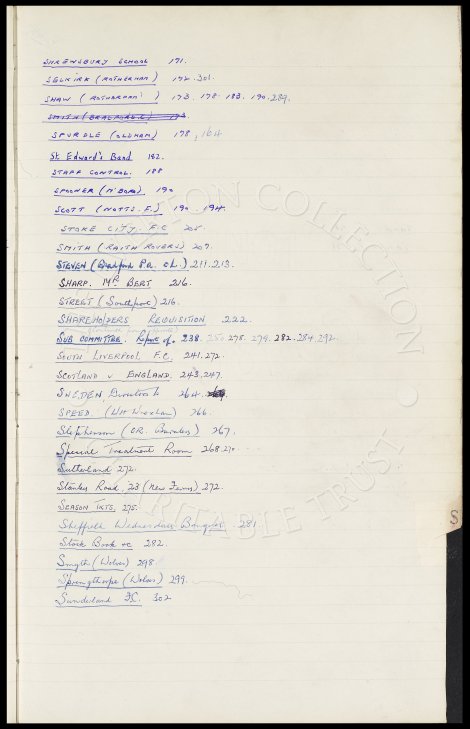 SHREWSBURY SCHOOL 171.
SELKIRK (ROTHERHAM) 172. 301.
SHAW (ROTHERHAM) 173. 178. 183. 190. 289.
SMITH (BRADFORD C) 173
SPURDLE (OLDHAM) 178, 164
St Edward's Band 182.
STAFF CONTROL. 188
SPOONER (M'BORO) 190
SCOTT (NOTTS. F.) 190. 194.
STOKE CITY. F.C 205.
SMITH (RAITH ROVERS) 207.
STEVEN (Bradford Pa. ch.) 211. 213.
SHARP. Mr BERT 216.
STREET (Southport) 216.
SHAREHOLDERS REQUISITION 222.
SUB COMMITTEE. Report of. 238. 250 278. 279. 282. 284. 292.
SOUTH LIVERPOOL F.C. 241. 272.
SCOTLAND v ENGLAND. 243. 247.
SWEDEN, Directors to 264.
SPEED. (WH Wrexham) 266.
Stephenson (CR. Barnsley) 267.
Special Treatment Room 268. 270.
Sutherland 272.
Stanley Road, 23 (New Ferry) 272.
SEASON TKTS. 275.
Sheffield Wednesday Banquet. 281.
Stock Book &c 282.
Smyth (Wolves) 298
Springthorpe (Wolves) 299.
Sunderland FC. 302
S
COLLECTION
CHARITABLE TRUST